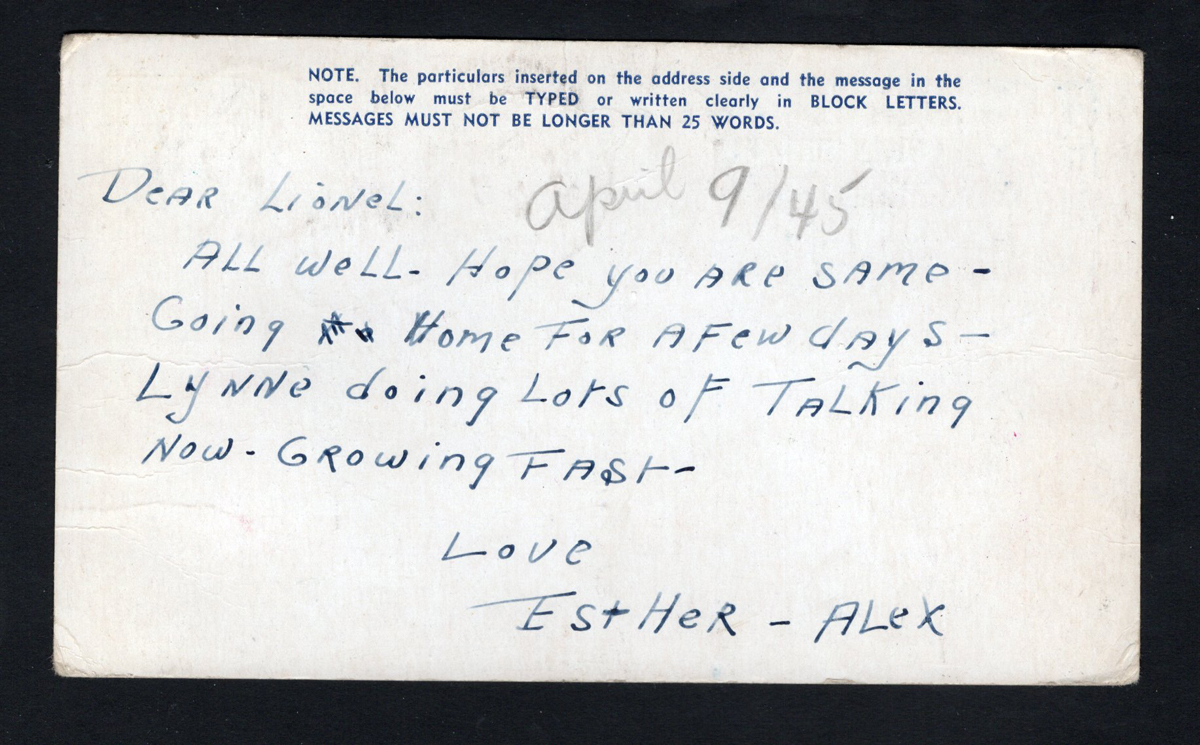 NOTE. The particulars inserted on the address side and the message in the
space below must be TYPED or written clearly in BLOCK LETTERS.
MESSAGES MUST NOT BE LONGER THAN 25 WORDS.
April 9/45
DeAR LioNeL:
ALL weLL- Hope you ARe SAMe -
Going Home FoR A Few dAyS -
LyNNe doing Lots oF TALKing
Now- GRowing FASt -
Love
EStHeR - ALeX